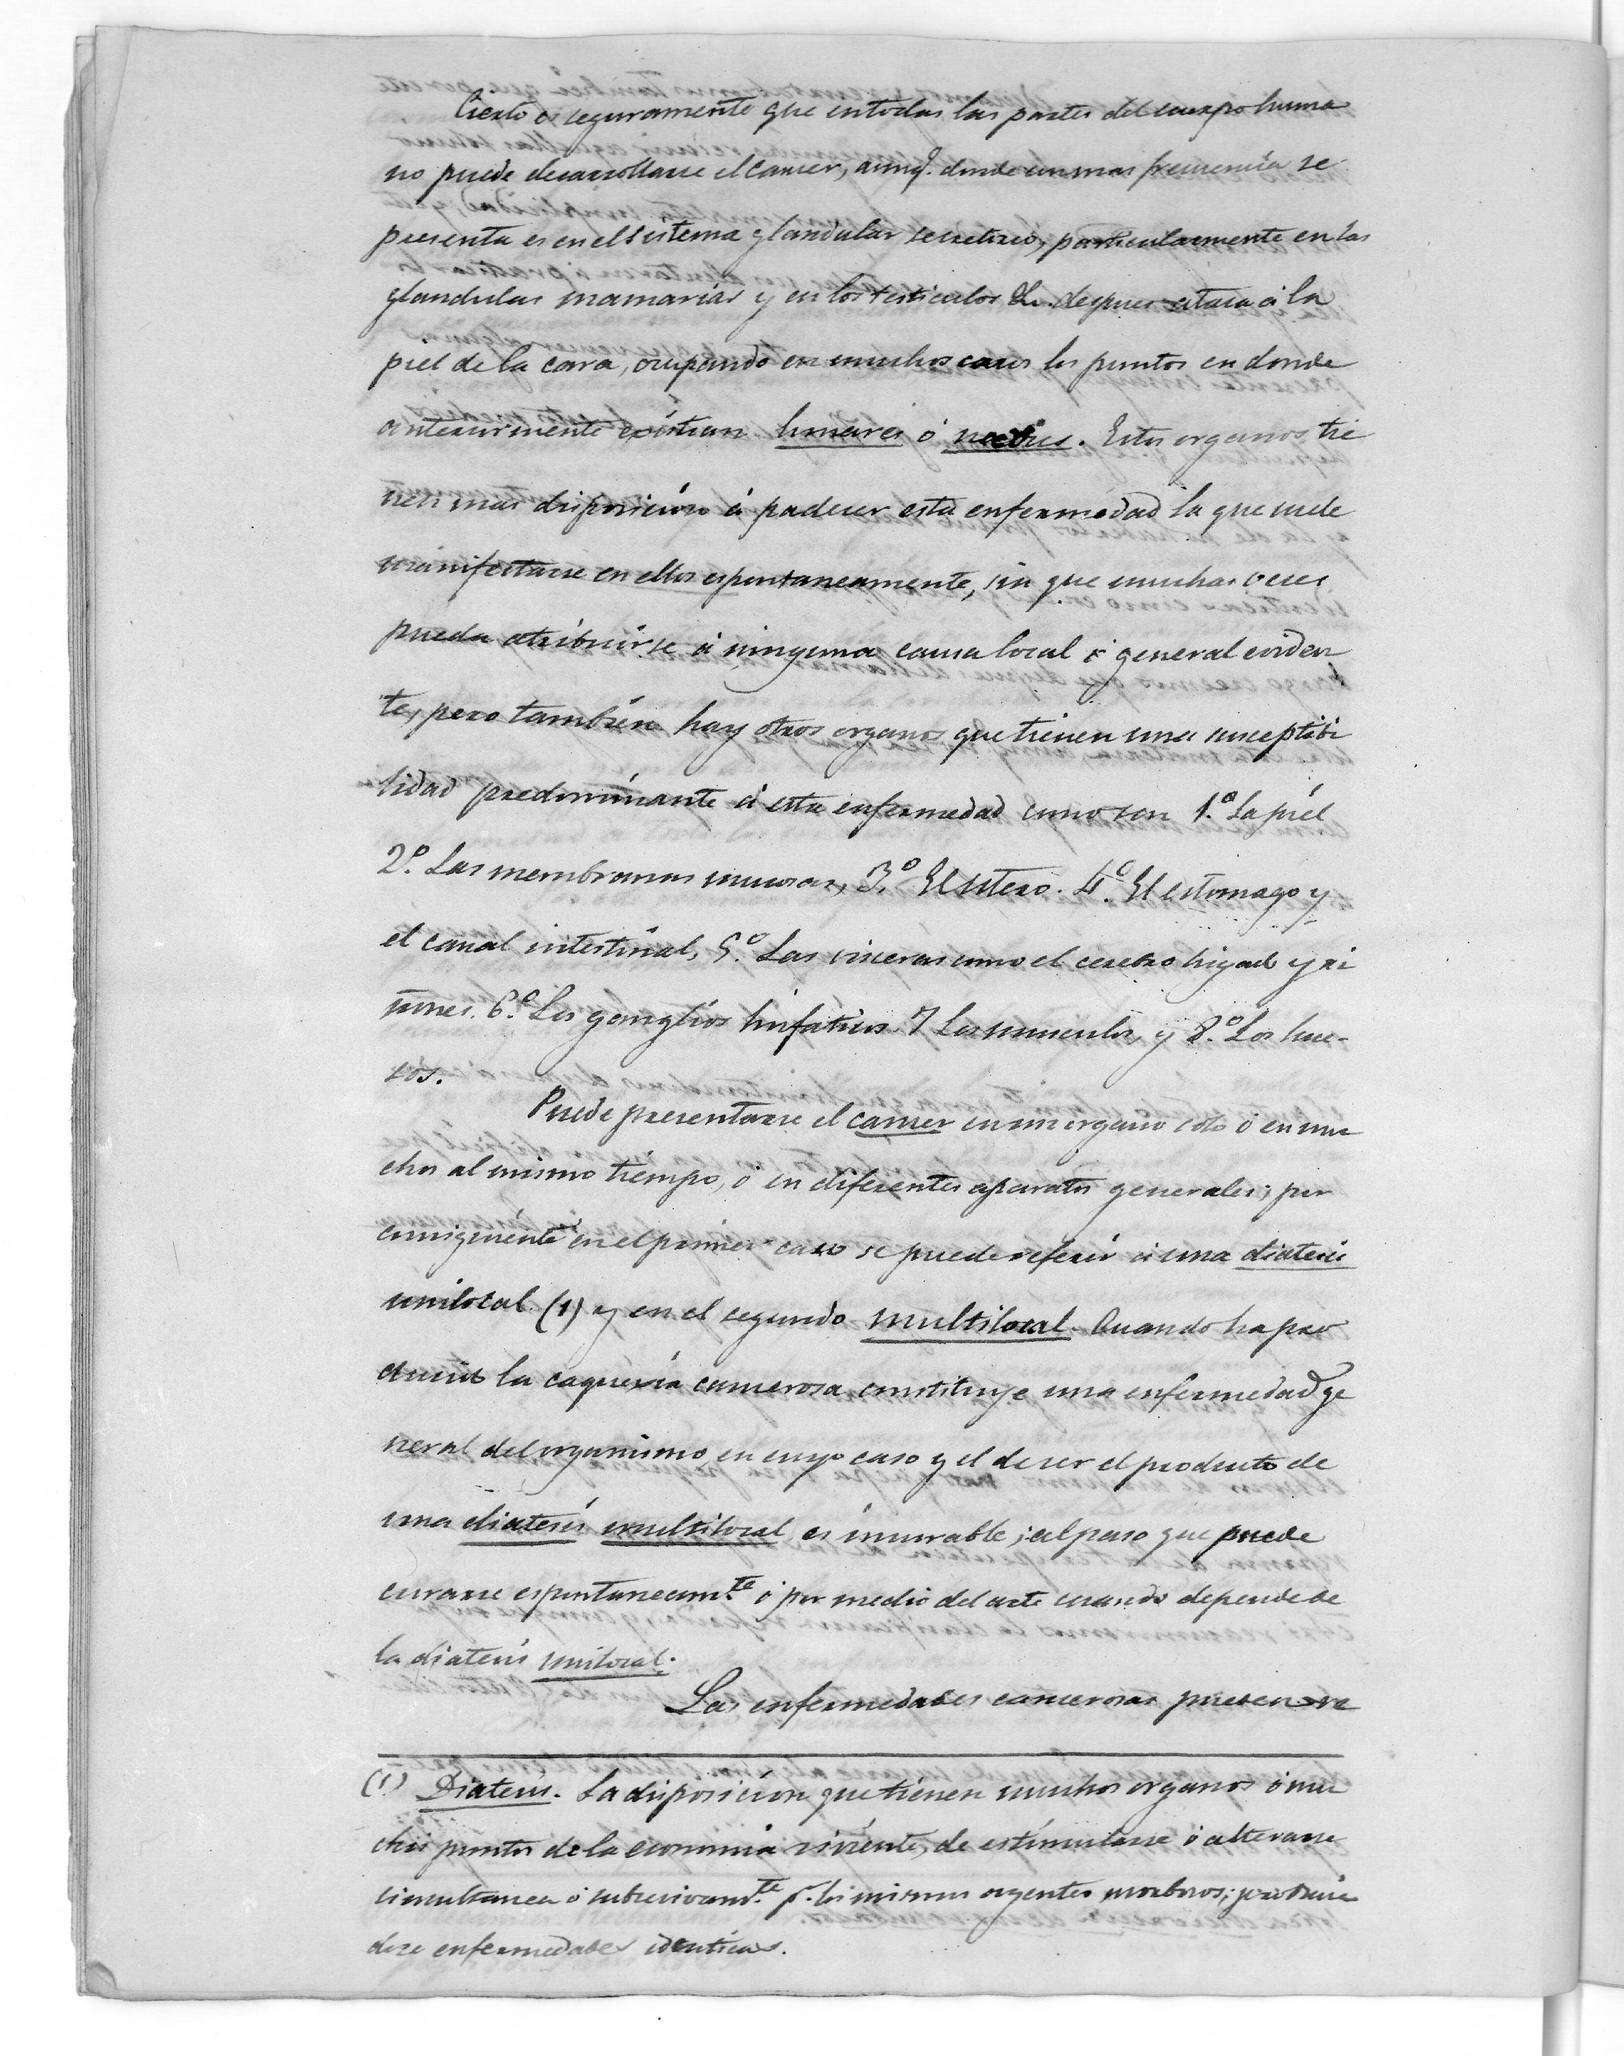 Cierto es seguramente que en todas las partes del cuerpo huma
no puede desarrollarse el cancer, aunq.e donde con mas frecuencia se
presenta es en el sistema glandular secretorio, particularmente en las
glandulas mamarias y en los testiculos &. despues ataca á la
piel de la cara, ocupando en muchos casos los puntos en donde
anteriormente existian lunares ó noevus. Estos organos tie
nen mas disposición á padecer esta enfermedad la que suele
manifestarse en ellos espontaneamente, sin que muchas veces
pueda atribuirse á ninguna causa local ó general eviden
te, pero también hay otros organos que tienen una susceptibi
lidad predominante á esta enfermedad como son 1.º La piel
2.º Las membranas mucosas, 3.º El utero. 4.º El estomago y
el canal intestinal, 5.º Las visceras como el cerebro higado y ri
ñones. 6.º Los ganglios linfaticos 7 Los musculos, y 8.º Los hue-
sos.
Puede presentarse el cancer en un organo solo ó en mu
chos al mismo tiempo, ó en diferentes aparatos generales; por
consiguiente en el primer caso se puede referir á una diatesis
unilocal (1) y en el segundo multilocal. Cuando ha pro
ducido la caquexia cancerosa constituye una enfermedad ge
neral del organismo, en cuyo caso y el de ser el producto de
una diatesis multilocal es incurable; al paso que puede
curarse espontaneam.te ó por medio del arte cuando depende de
la diatesis unilocal.
Las enfermedades cancerosas pueden
(1) Diatesis. La disposicion que tienen muchos organos ó mu
chos puntos de la economia viviente, de estimularse ó alterarse
simultanea ó subcesivam.te p.r los mismos agentes morbosos; produci
dose enfermedades identicas.